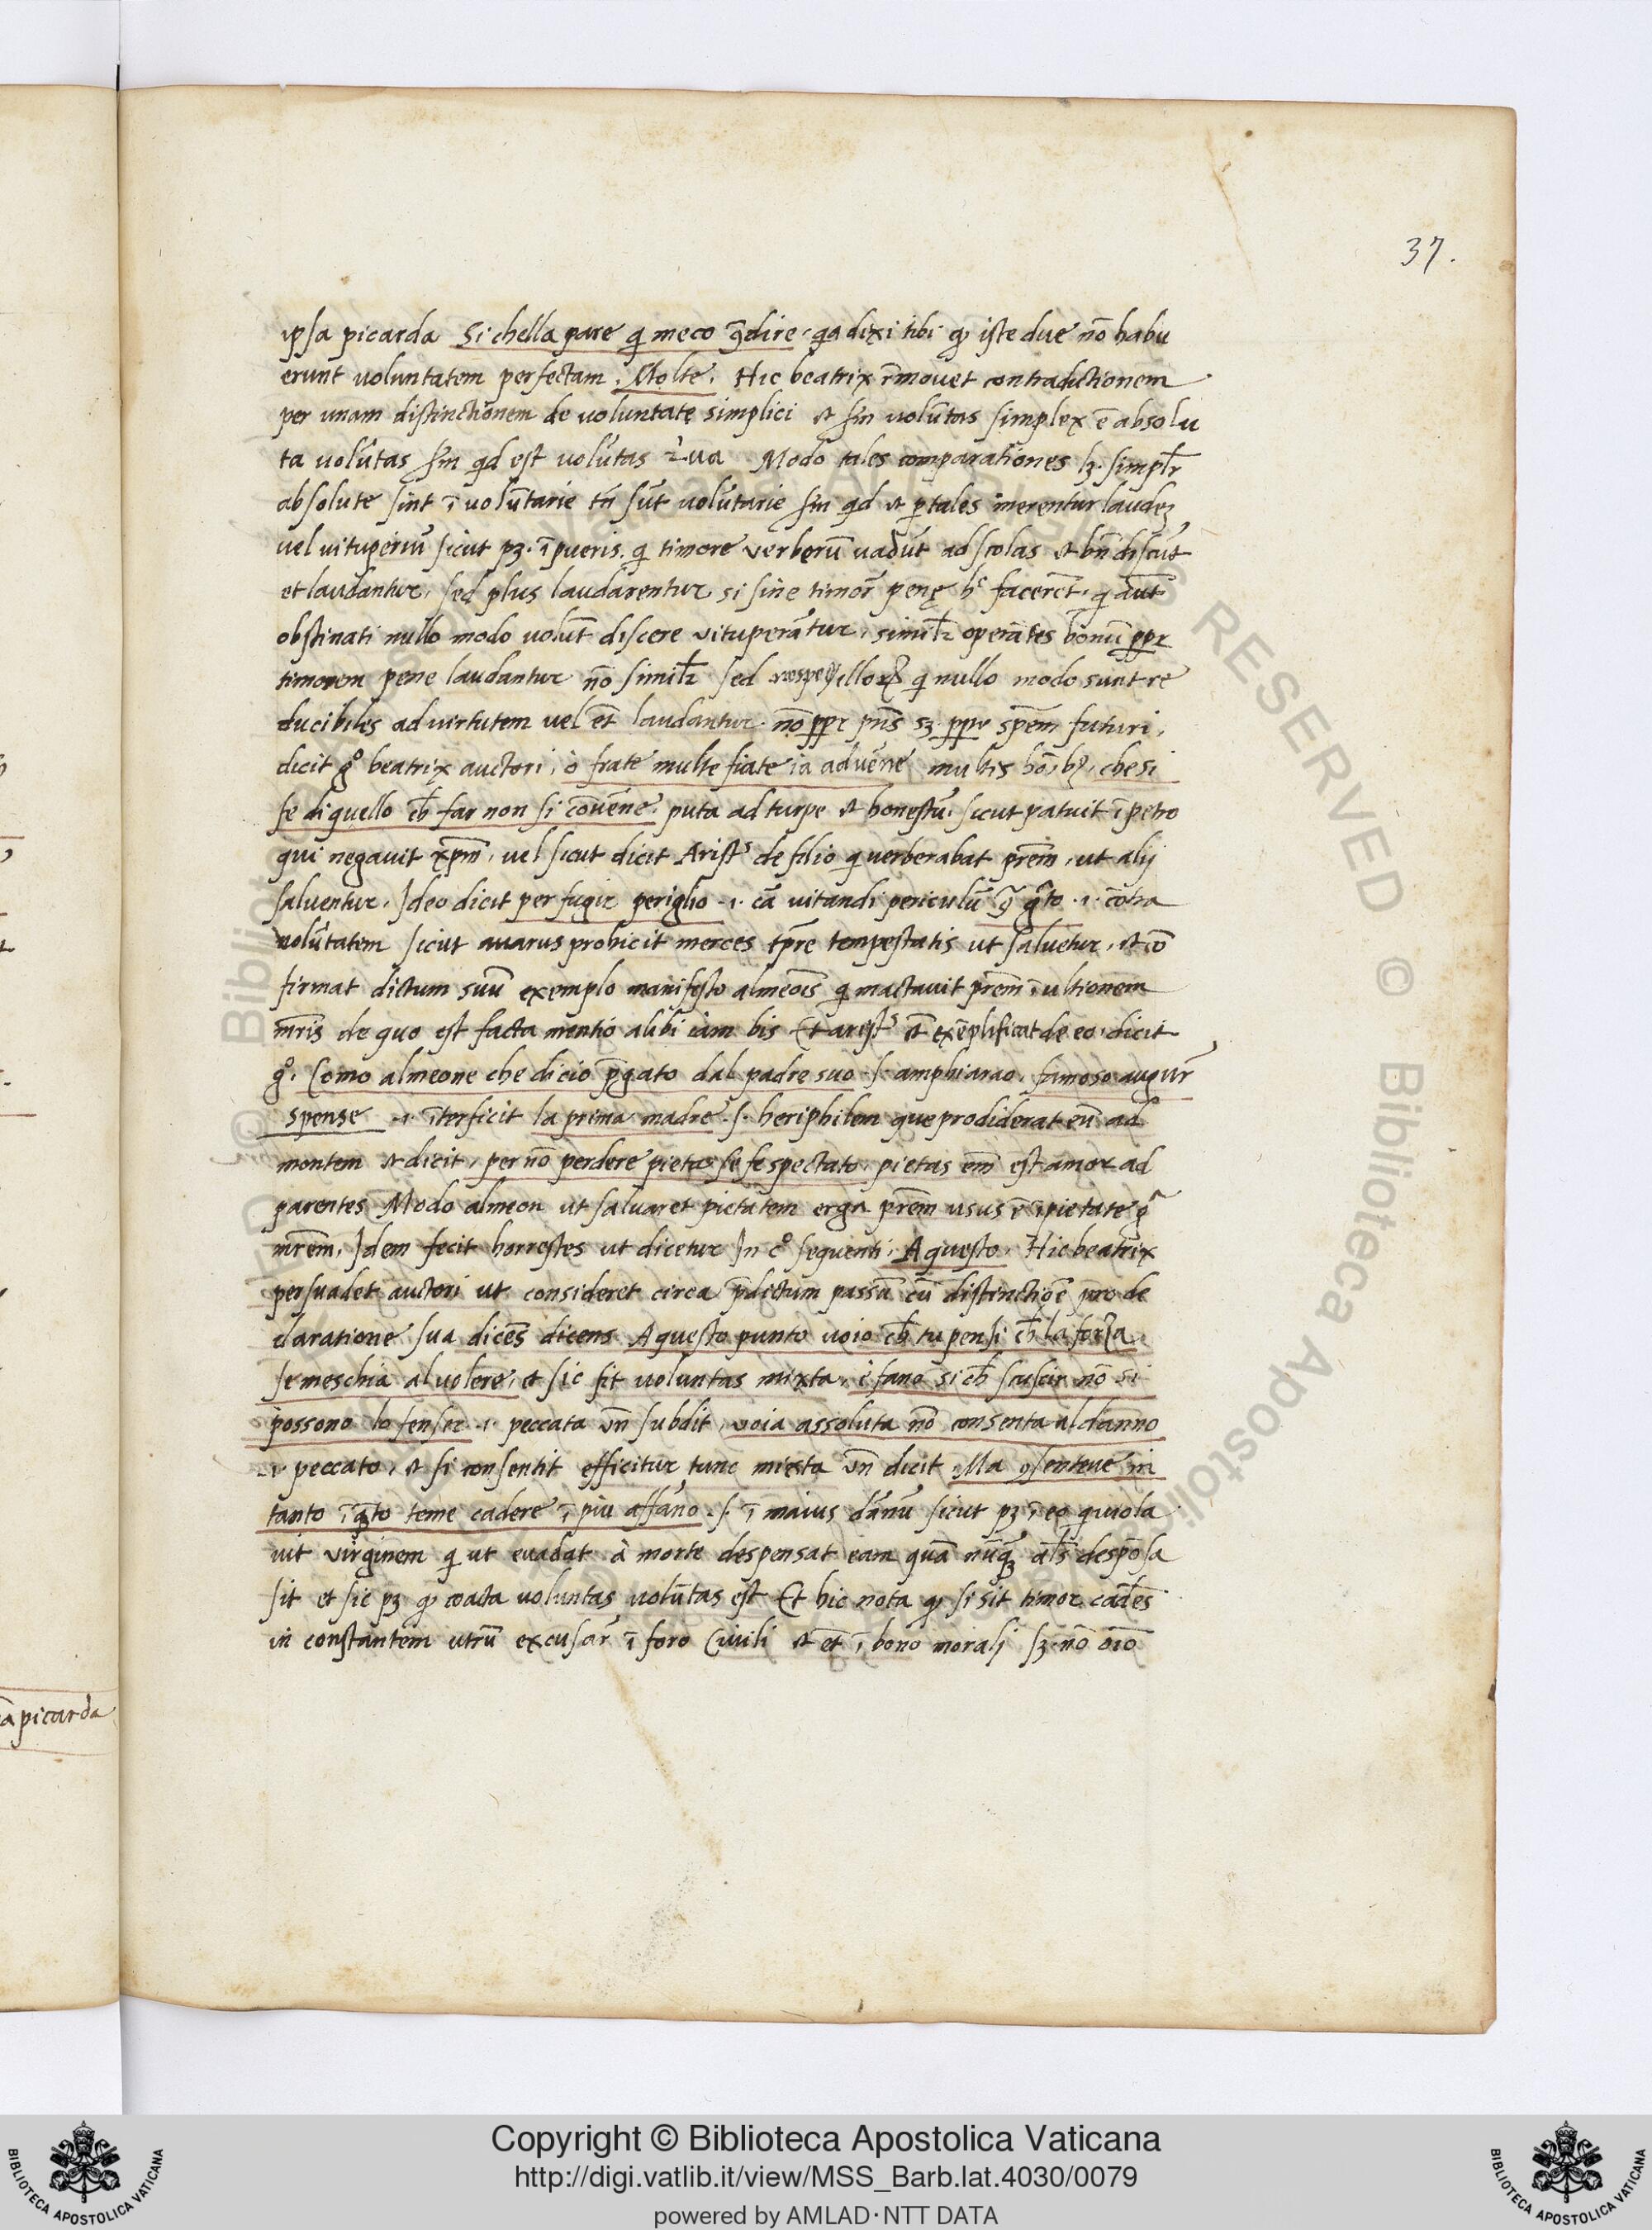 37.
ipsa picarda Si chella pare qi meco 9̄dire. qa dixi tibi qȝ iste due nō habu
erunt voluntatem perfectam. Molte. Hic beatrix r̄movet contradictionem
per unam distinctionem de voluntate simplici et sm̄ volūtas simplex ē absolu
ta volūtas sm̄ qd est volūtas Modo tales comparationes lȝ. simplr̄
absolute sint ī volūtarie tn̄ sūt volūtarie sm̄ qd et p tales merentur laudeȝ
vel vituperiū sicut pȝ. ī pueris. qi timore verberū vadūt ad scolas et bn̄ discūt
et laudantur, sed plus laudarentur si sine timor̄ penę hᶜ facerēt. qi aūt
obstinati nullo modo volūt discere vituperātur, similr̄ operātes bonū ppr̄
timorem pene laudantur nō similr̄ sed illoꝝ qi nullo modo sunt re
ducibiles ad virtutem vel et̄ laudantur. nō ppr̄ pn̄s sȝ. ppr̄ spēm futuri,
dicit g° beatrix auctori, ò frate multe fiate ia advēne multis hoīb9, che si
fe di quello ch̄ far non si cōvēne. puta ad turpe et honestū. sicut patuit ī petro
qui negavit xp̄m, vel sicut dicit Aristˢ de filio qi verberabat prēm, ut alij
salventur. Ideo dicit per fugir periglio .i. cā vitandi periculū 9̄ grto .i. cōtra
volūtatem sicut avarus prohicit merces tp̄re tempestatis ut salvetur, et cō
firmat dictum suū exemplo manifesto almeōis qi mactavit prēm ī ultionem
mr̄is de quo est facta mentio alibi iam bis Et aristˢ et̄ exēplificat de eo. dicit
g°. Como almeone che dicio p̄gato dal padre suo .s. amphiarao. famoso augur̄
spense .i. īterficit la prima madre .s. heriphilem que prodiderat eū ad
montem et dicit, per nō perdere pieta se fe spectato. pietas em̄ est amor ad
parentes Modo almeon ut salvaret pietatem erga prēm usus ē īpietate 9ᵃ
mrēm. Idem fecit horrestes ut dicetur In c° sequenti. A questo. Hic beatrix
persuadet auctori ut consideret circa p̄dictum passū cū distinctiōe pro de
claratione sua dicēs dicens A questo punto voio ch̄ tu pensi ch̄ la forza
se meschia al volere, et sic fit voluntas mixta, e fano si ch̄ scusar nō si
possono lo fense .i. peccata un̄ subdit, voia assoluta nō consenta al danno
.i. peccato, et si consentit efficitur tunc mixta un̄ dicit Ma 9senteve in
tanto īqto teme cadere ī piu affano .s. ī maius dānū sicut pȝ ī eo qi viola
vit virginem qi ut evadat à morte despensat eam quā nūqȝ al̄s desponsa
sit et sic pȝ qȝ coacta voluntas volūtas est Et hic nota qȝ si sit timor cadēs
in constantem utrū excusar̄ ī foro Civili et et̄ ī bono morali sȝ. nō oīo
ā picarda
Copyright © Biblioteca Apostolica Vaticana
http://digi.vatlib.it/view/MSS_Barb.lat.4030/0079
powered by AMLAD·NTT DATA
BIBLIOTECA APOSTOLICA VATICANA
BIBLIOTECA APOSTOLICA VATICANA